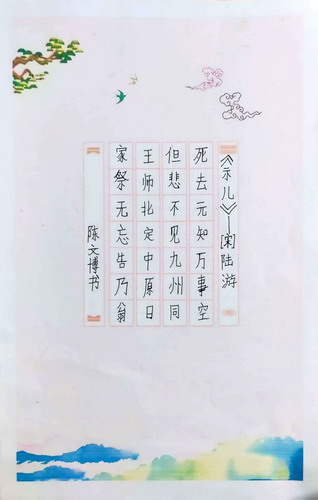 《示儿》—[宋]陆游
死去元知万事空
但悲不见九州同
王师北定中原日
家祭无忘告乃翁
陈文博书